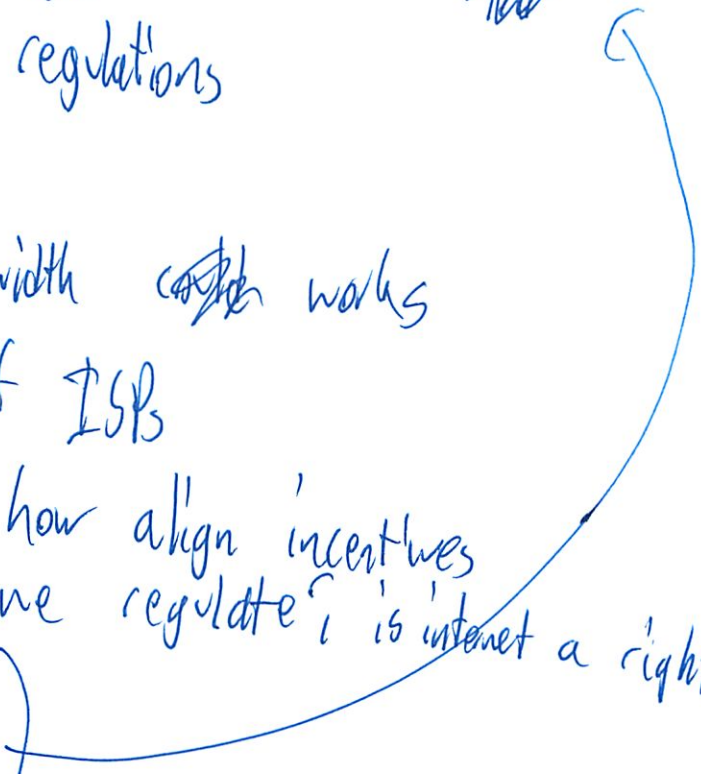 regulations
width works
f ISPs
how align incentives
we regulate?, is internet a righ